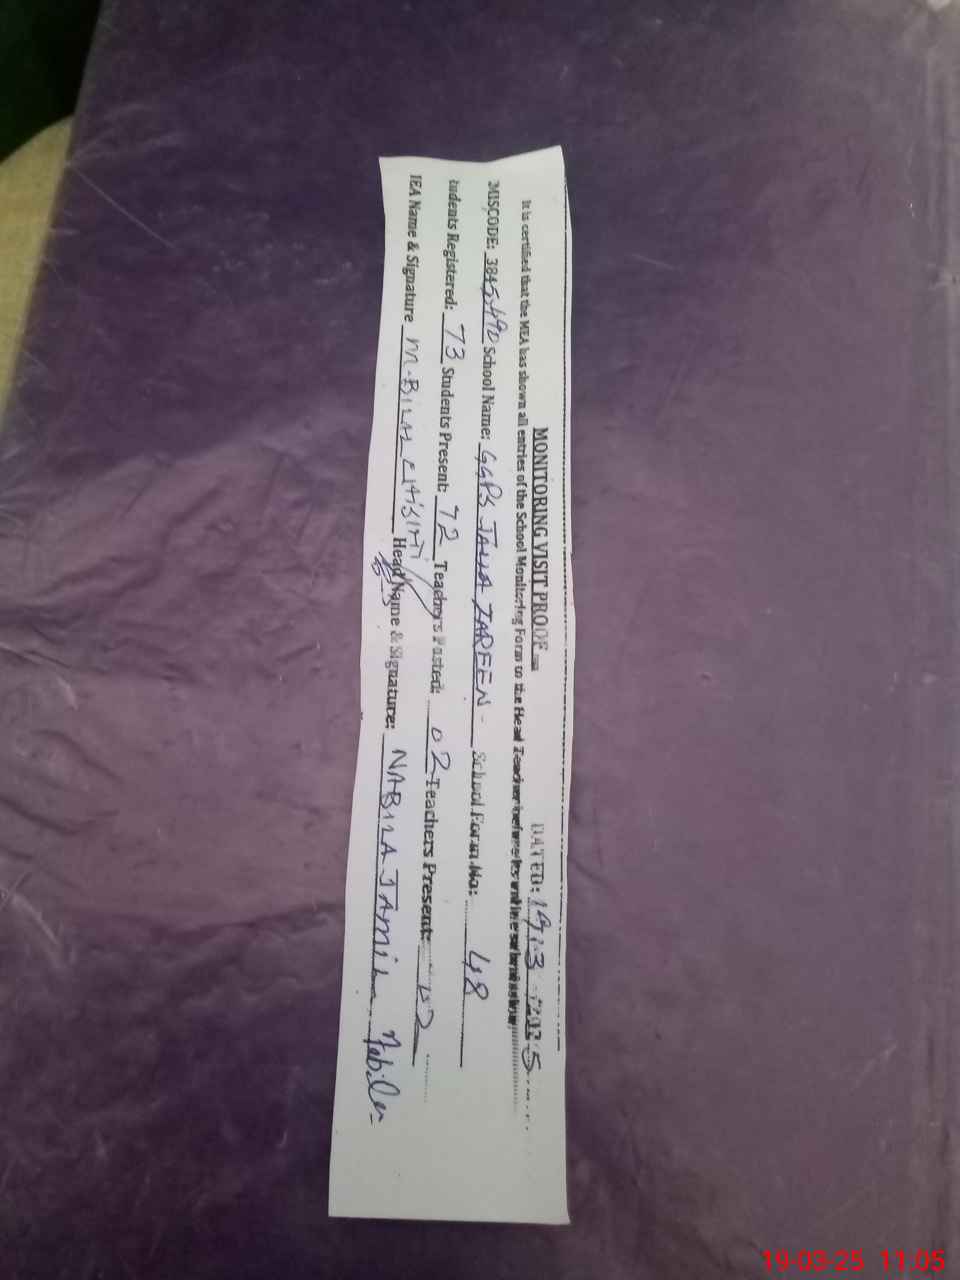 MONITORING VISIT PROOF DATED: 19-3-2025
It is certified that the MEA has shown all entries of the School Monitoring Form to the Head Teacher before its
MISCODE: 3845 School Name: GGPS ZAREEN - School Form No: 48
tudents Registered: 73 Students Present: 72 Teachers Posted: 02 Teachers Present: 02
IEA Name & Signature M. BILAL Head Name & Signature: NABILA JAMIL Nabila
19-03-25 11:05